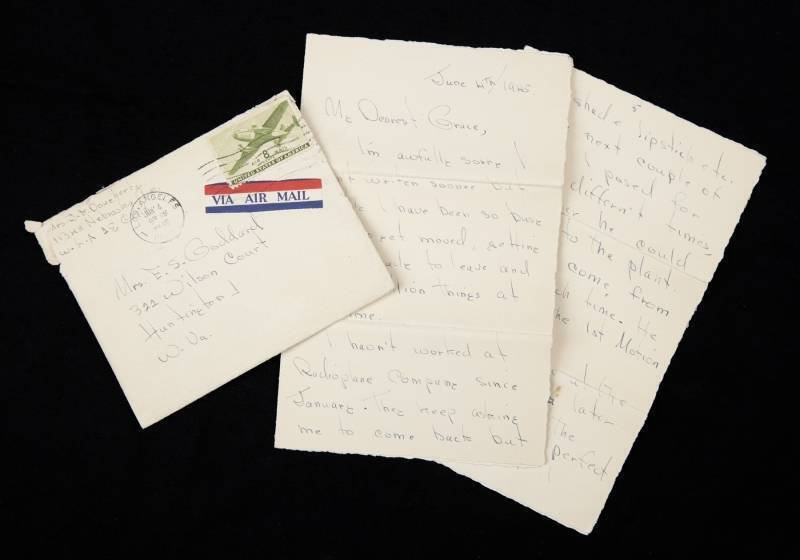 Mrs J. E. Dougherty
W. L.A
LOS ANGELES
JUN 4
AIR MAIL
8
UNITED STATES OF AMERICA
VIA AIR MAIL
Mrs. E. S. Goddard
322 Wilson Court
Huntington 1
W. Va.
June 4th, 1945
My Dearest Grace,
I'm awfully sorry I
writen sooner but
I have been so busy
moved, getting
to leave and
things at
I havn't worked at
Radioplane Company since
January. They keep asking
me to come back but
5
shade lipstick etc.
next couple of
I posed for
different times.
he could
to the plant
come from
time. He
the 1st Motion
later
the
perfect